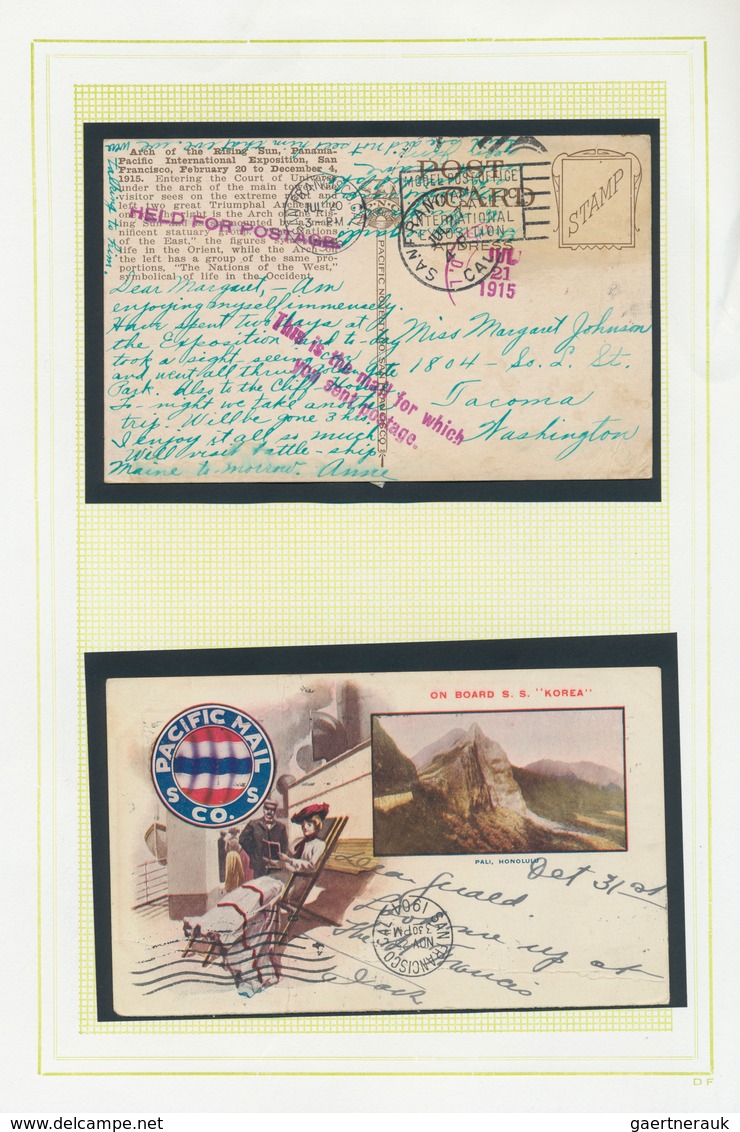 Arch of the Rising Sun, Panama-
Pacific International Exposition, San
Francisco, February 20 to December 4,
1915. Entering the Court of Universe
under the arch of the main tower the
visitor sees on the extreme right and
left two great Triumphal Arches.
On the right is the Arch of the Ris-
ing Sun surmounted by a mag-
nificent statuary group "The Nations
of the East," the figures symbolical of
life in the Orient, while the Arch on
the left has a group of the same pro-
portions, "The Nations of the West,"
symbolical of life in the Occident.
HELD FOR POSTAGE.
talking to him.
did not see him that eve. we were
POST CARD
STAMP
MODEL POST OFFICE
PANAMA-PACIFIC
INTERNATIONAL
EXPOSITION
SAN FRANCISCO
CAL.
JUL
21
1915
PACIFIC NOVELTY CO., SAN FRANCISCO
Dear Margaret, - Am
enjoying myself immensely.
Have spent two days at
the Exposition and to-day
took a sight seeing
and went all thru Golden Gate
Park. Also to the Cliff House
To-night we take another
trip. Will be gone 3 hrs.
I enjoy it all so much.
Will visit battle-ship
Maine to-morrow. Anne
This is the mail for which
you sent postage.
Miss Margaret Johnson
1804 - So. L. St.
Tacoma
Washington
ON BOARD S. S. "KOREA"
PACIFIC MAIL
S S
CO.
PALI, HONOLULU
Oct 31st
Dear Gerald
Look me up at
the St Francis
Jack
SAN FRANCISCO, CAL.
NOV 2
3 30 PM
1904
D F
gaertnerauk